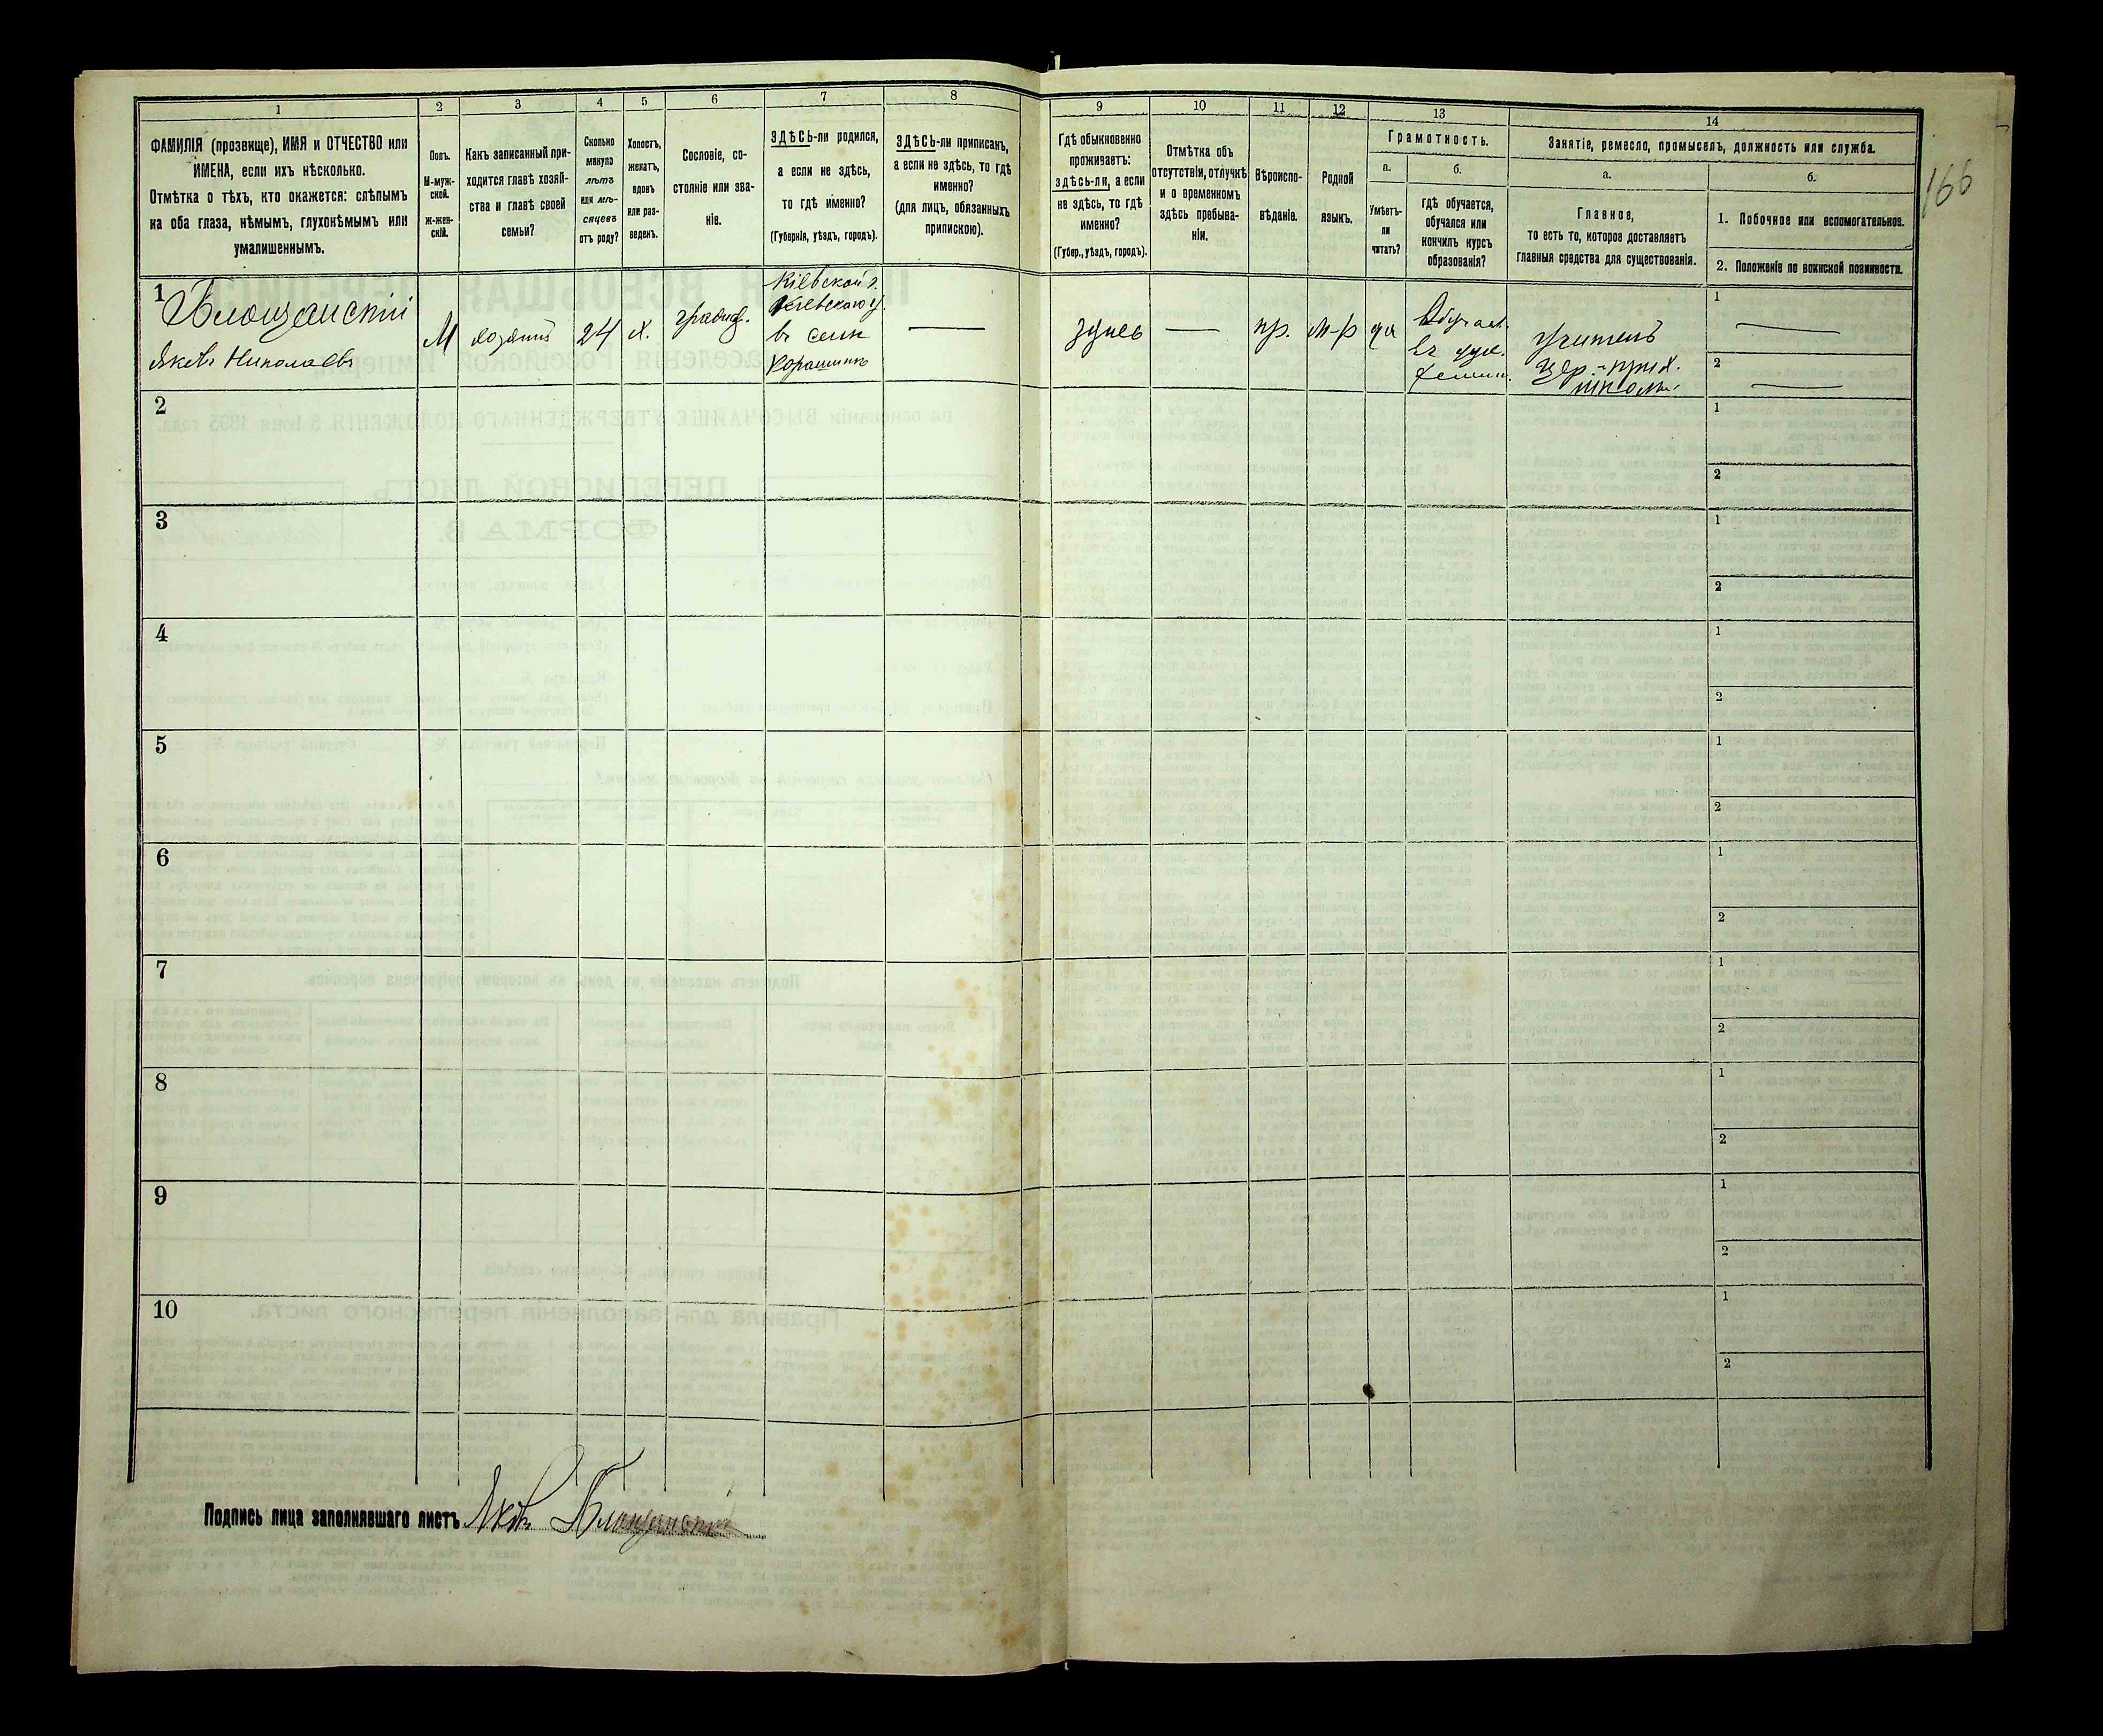 166
1
2
3
4
5
6
7
8
9
10
11
12
13
14
ФАМИЛІЯ (прозвище), ИМЯ и ОТЧЕСТВО или
ИМЕНА, если ихъ нѣсколько.
Отмѣтка о тѣхъ, кто окажется: слѣпымъ
на оба глаза, нѣмымъ, глухонѣмымъ или
умалишеннымъ.
Полъ.
М-муж-
ской.
ж-жен-
скій.
Какъ записанный при-
ходится главѣ хозяй-
ства и главѣ своей
семьи?
Сколько
минуло
лѣтъ
или мѣ-
сяцевъ
отъ роду?
Холостъ,
женатъ,
вдовъ
или раз-
веденъ.
Сословіе, со-
стояніе или зва-
ніе.
ЗДѢСЬ-ли родился,
а если не здѣсь,
то гдѣ именно?
(Губернія, уѣздъ, городъ).
ЗДѢСЬ-ли приписанъ,
а если не здѣсь, то гдѣ
именно?
(для лицъ, обязанныхъ
припискою).
Гдѣ обыкновенно
проживаетъ:
здѣсь-ли, а если
не здѣсь, то гдѣ
именно?
(Губер., уѣздъ, городъ).
Отмѣтка объ
отсутствіи, отлучкѣ
и о временномъ
здѣсь пребыва-
ніи.
Вѣроиспо-
вѣданіе.
Родной
языкъ.
Грамотность.
а.
Умѣетъ-
ли
читать?
б.
гдѣ обучается,
обучался или
кончилъ курсъ
образованія?
Занятіе, ремесло, промыселъ, должность или служба.
а.
Главное,
то есть то, которое доставляетъ
главныя средства для существованія.
б.
1. Побочное или вспомогательное.
2. Положеніе по воинской повинности.
1
Блощанскій
Яковъ Николаевъ
М
хозяинъ
24
х.
Кіевской г.
Кіевскаго у.
въ селѣ
—
здѣсь
—
пр.
м-р
да
въ дух.
Учитель
Цер.-прих.
школы.
1
—
2
—
2
1
2
3
1
2
4
1
2
5
1
2
6
1
2
7
1
2
8
1
2
9
1
2
10
1
2
Подпись лица заполнявшаго листъ Яковъ Блощанскій